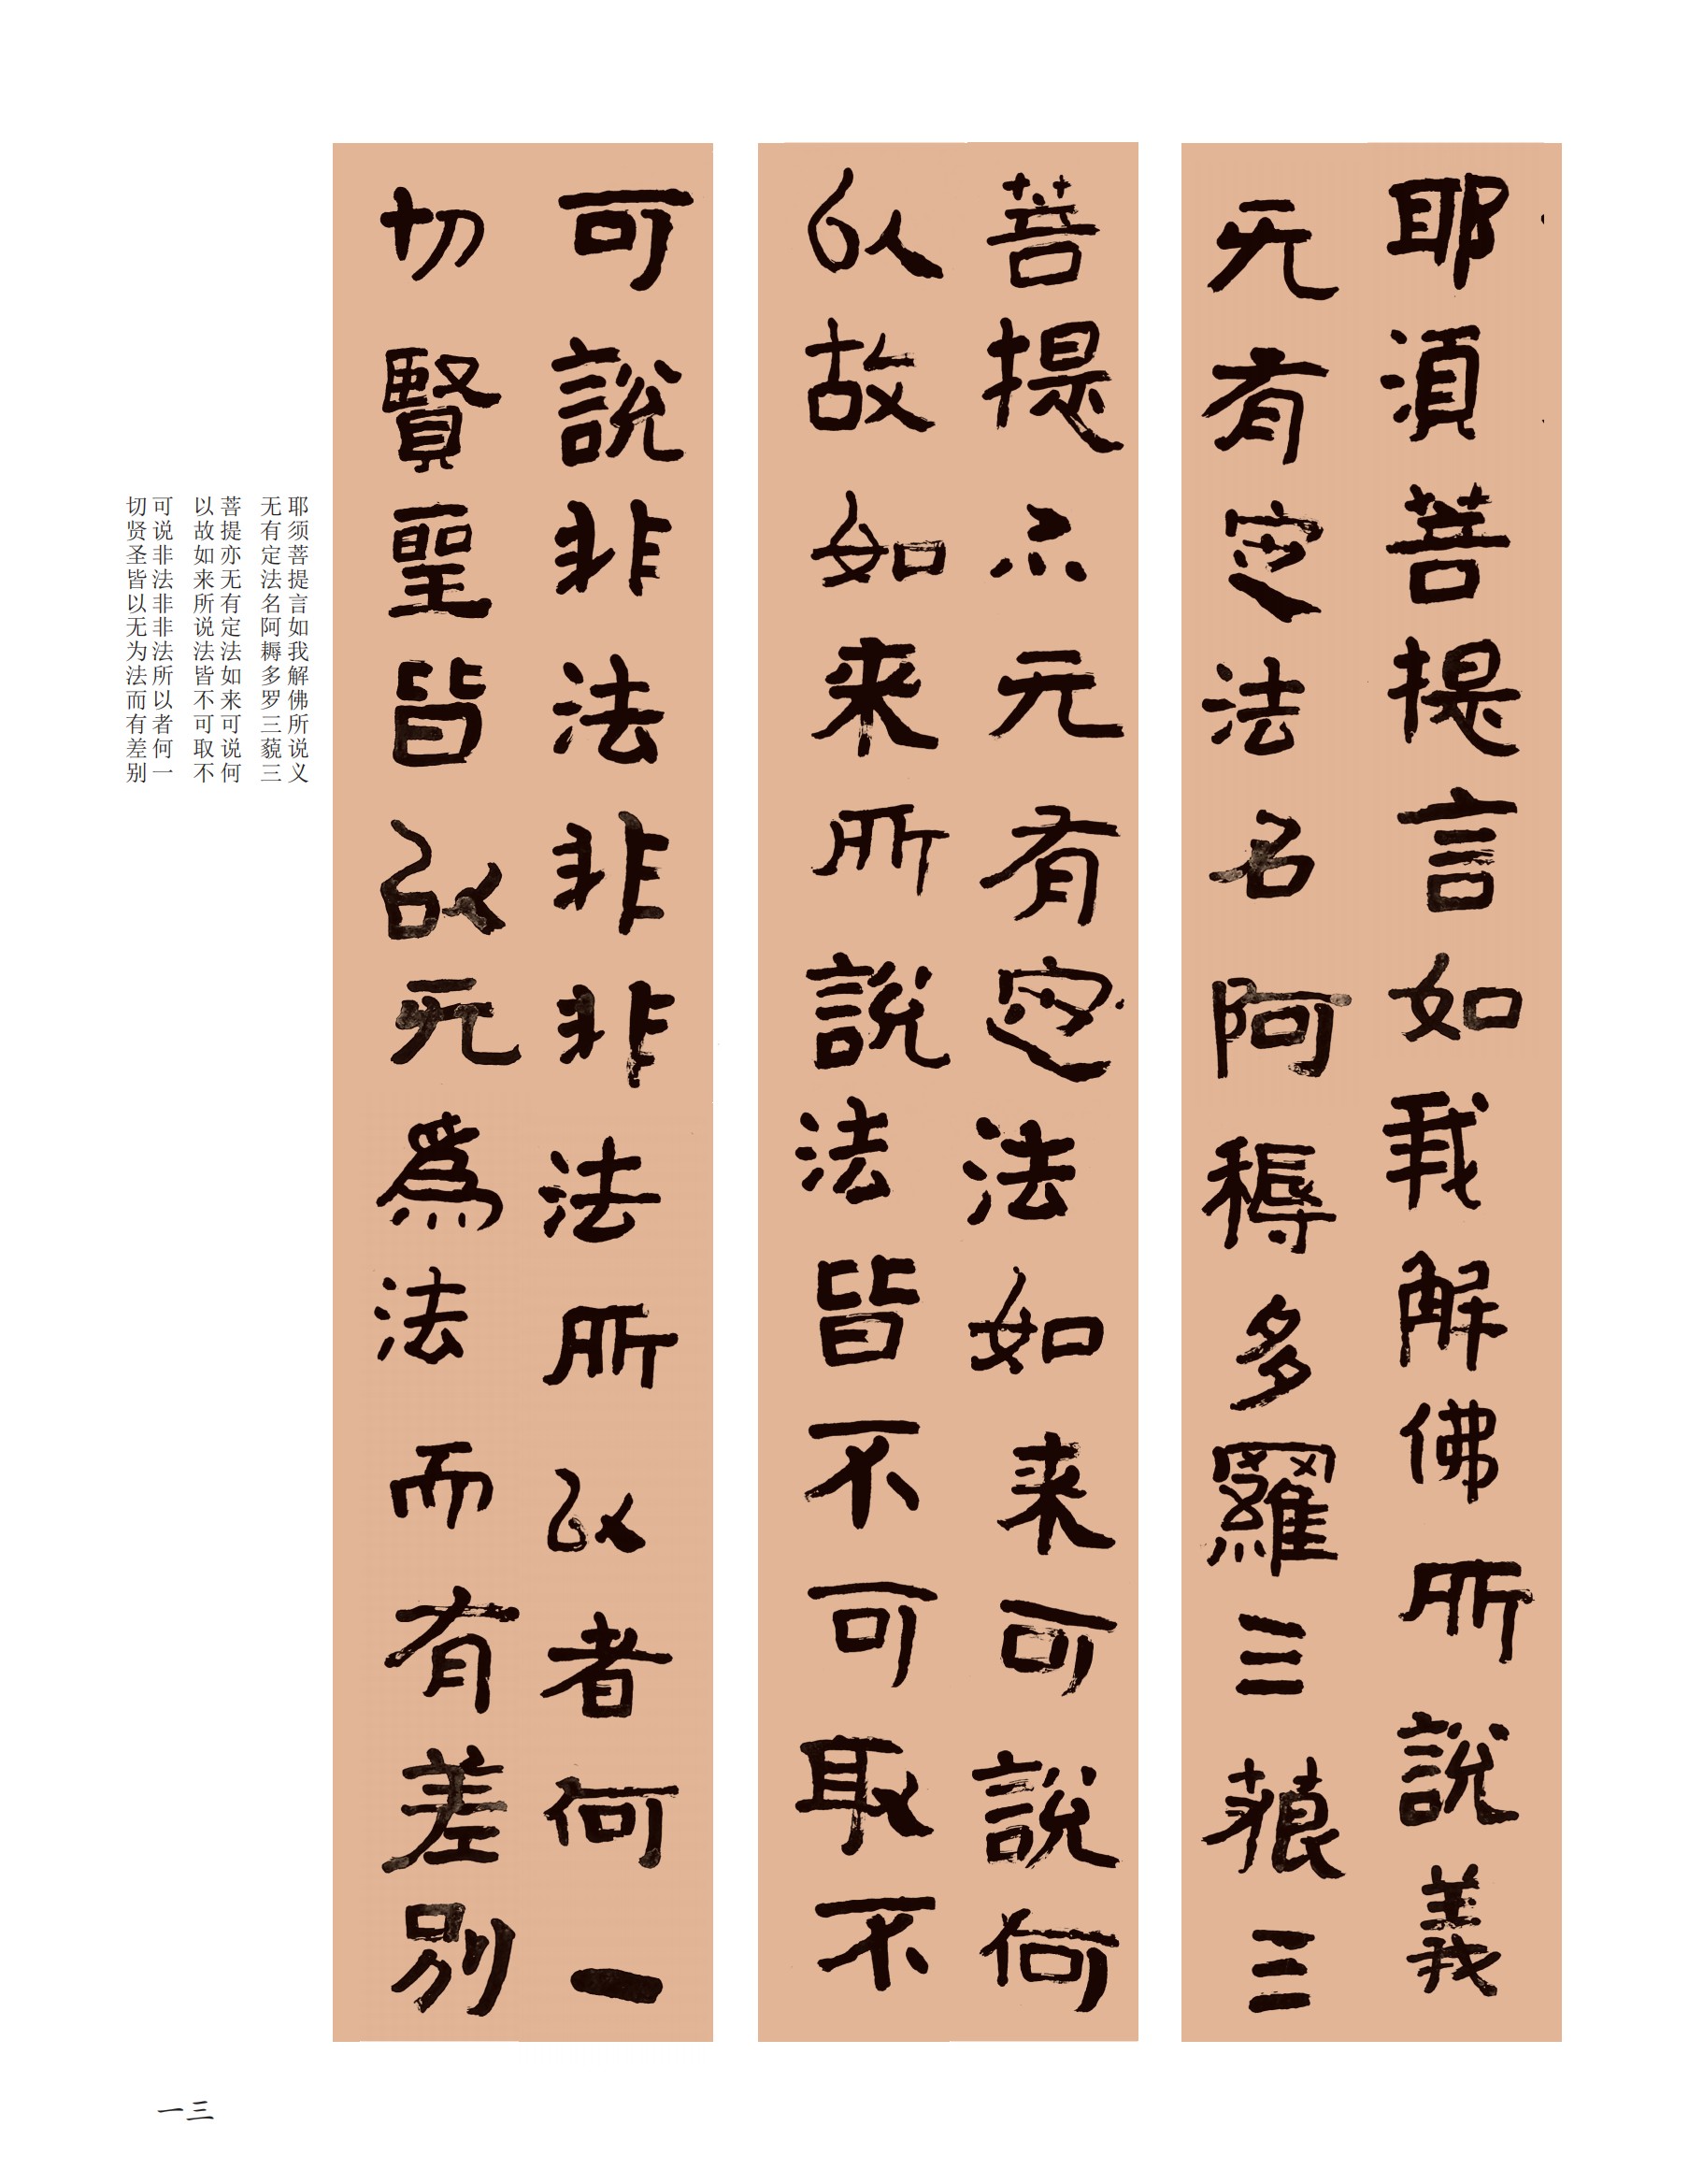 耶須菩提言如我解佛所說義
无有定法名阿耨多羅三藐三
菩提亦无有定法如来可說何
以故如来所說法皆不可取不
可說非法非非法所以者何一
切賢聖皆以无為法而有差别
耶须菩提言如我解佛所说义
无有定法名阿耨多罗三藐三
菩提亦无有定法如来可说何
以故如来所说法皆不可取不
可说非法非非法所以者何一
切贤圣皆以无为法而有差别
一三